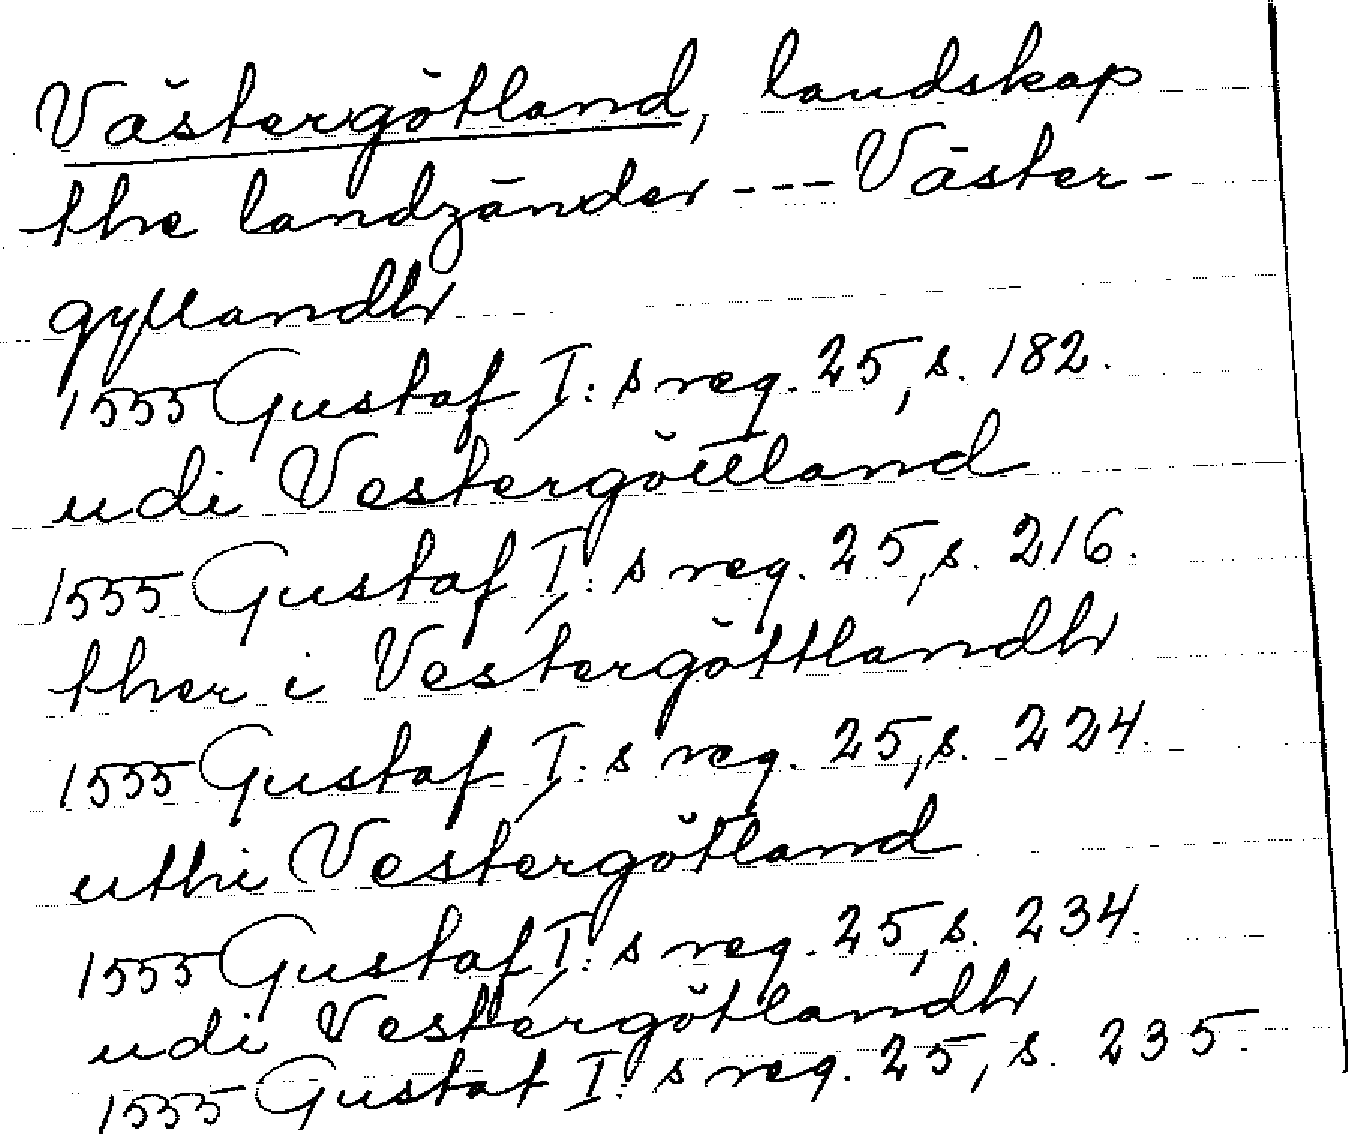 Västergötland, landskap
the landzänder --- Väster-
gyllandh
1555 Gustaf I:s reg. 25, s. 182.
udi Vestergöttland
1555 Gustaf I:s reg. 25, s. 216.
ther i Vestergöttlandh
1555 Gustaf I:s reg. 25, s. 224.
uthi Vestergötland
1555 Gustaf I:s reg. 25, s. 234.
udi Vestergötlandh
1555 Gustaf I:s reg. 25, s. 235.